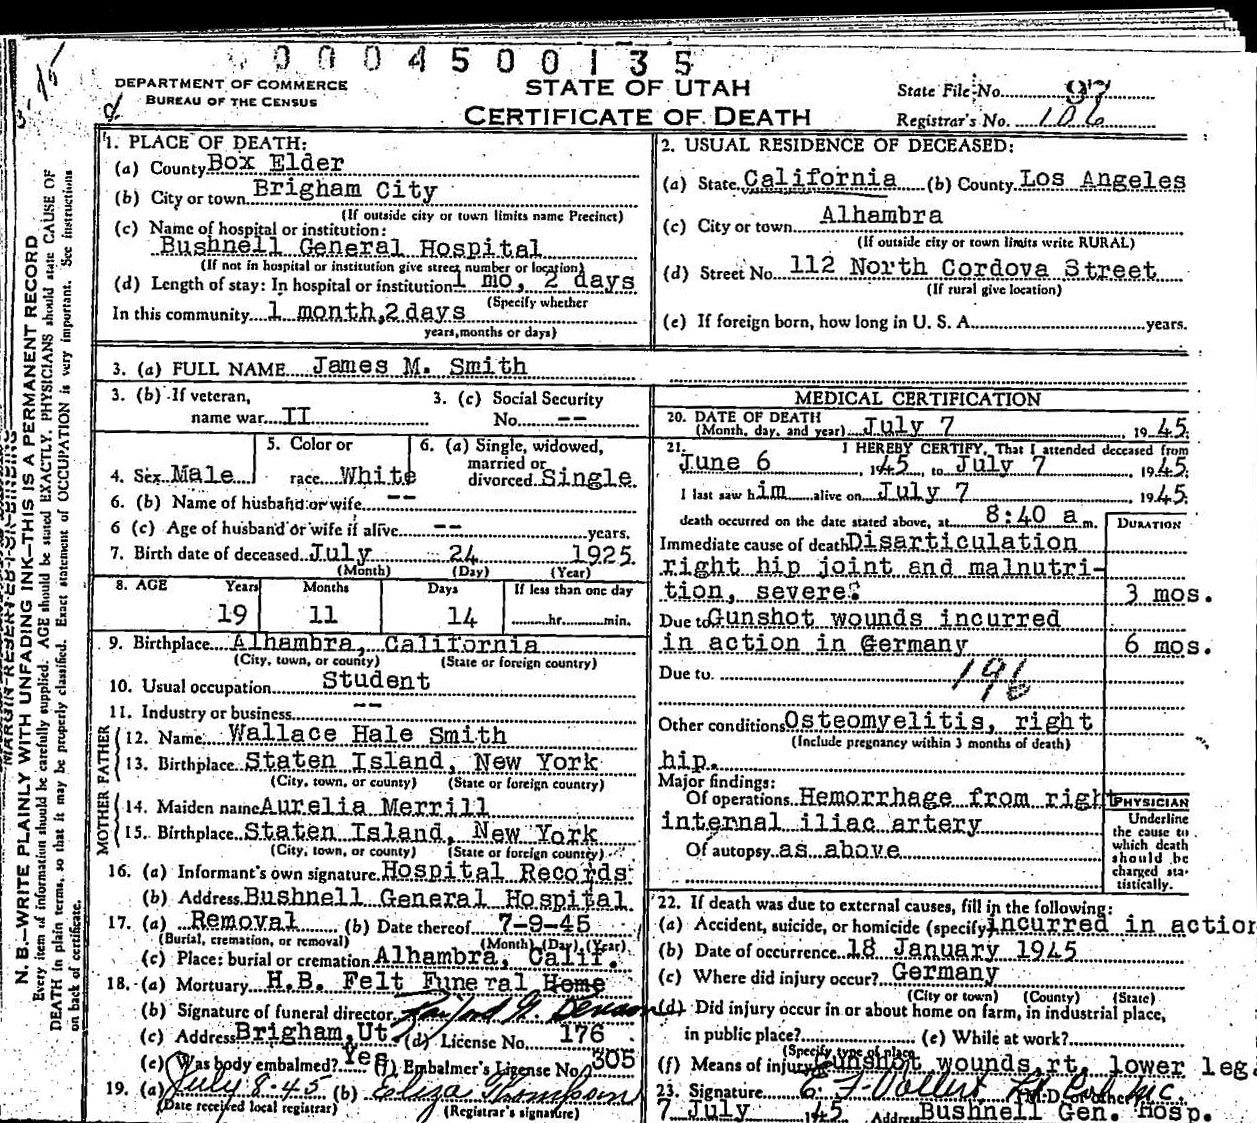 0004500135
DEPARTMENT OF COMMERCE
BUREAU OF THE CENSUS
STATE OF UTAH
CERTIFICATE OF DEATH
State File No. 97
Registrar's No. 106
MARGIN RESERVED FOR BINDING
N. B.—WRITE PLAINLY WITH UNFADING INK—THIS IS A PERMANENT RECORD
Every item of information should be carefully supplied. AGE should be stated EXACTLY. PHYSICIANS should state CAUSE OF
DEATH in plain terms, so that it may be properly classified. Exact statement of OCCUPATION is very important. See instructions
on back of certificate.
1. PLACE OF DEATH:
(a) County Box Elder
(b) City or town Brigham City
(If outside city or town limits name Precinct)
(c) Name of hospital or institution:
Bushnell General Hospital
(If not in hospital or institution give street number or location)
(d) Length of stay: In hospital or institution 1 mo, 2 days
(Specify whether
In this community 1 month,2 days
years, months or days)
2. USUAL RESIDENCE OF DECEASED:
(a) State California (b) County Los Angeles
(c) City or town Alhambra
(If outside city or town limits write RURAL)
(d) Street No. 112 North Cordova Street
(If rural give location)
(e) If foreign born, how long in U. S. A. years.
3. (a) FULL NAME James M. Smith
3. (b) If veteran,
name war II
3. (c) Social Security
No. --
4. Sex Male
5. Color or
race White
6. (a) Single, widowed,
married or
divorced Single
6. (b) Name of husband or wife --
6 (c) Age of husband or wife if alive -- years.
7. Birth date of deceased July 24 1925
(Month) (Day) (Year)
8. AGE Years Months Days If less than one day
19 11 14 hr. min.
9. Birthplace Alhambra, California
(City, town, or county) (State or foreign country)
10. Usual occupation Student
11. Industry or business --
FATHER
12. Name Wallace Hale Smith
13. Birthplace Staten Island, New York
(City, town, or county) (State or foreign country)
MOTHER
14. Maiden name Aurelia Merrill
15. Birthplace Staten Island, New York
(City, town, or county) (State or foreign country)
16. (a) Informant's own signature Hospital Records
(b) Address Bushnell General Hospital
17. (a) Removal (b) Date thereof 7-9-45
(Burial, cremation, or removal) (Month) (Day) (Year)
(c) Place: burial or cremation Alhambra, Calif.
18. (a) Mortuary H.B. Felt Funeral Home
(b) Signature of funeral director
(c) Address Brigham, Ut. (d) License No. 176
(e) Was body embalmed? Yes (f) Embalmer's License No. 305
19. (a) July 8-45 (b) Eliza Thompson
(Date received local registrar) (Registrar's signature)
MEDICAL CERTIFICATION
20. DATE OF DEATH
(Month, day, and year) July 7 1945
21. I HEREBY CERTIFY, That I attended deceased from
June 6, 1945, to July 7, 1945
I last saw him alive on July 7, 1945
death occurred on the date stated above, at 8:40 a m.
DURATION
Immediate cause of death Disarticulation
right hip joint and malnutri-
tion, severe. 3 mos.
Due to Gunshot wounds incurred
in action in Germany 6 mos.
Due to 196
Other conditions Osteomyelitis, right
(Include pregnancy within 3 months of death)
hip.
Major findings:
Of operations Hemorrhage from right
internal iliac artery
Of autopsy as above
PHYSICIAN
Underline
the cause to
which death
should be
charged sta-
tistically.
22. If death was due to external causes, fill in the following:
(a) Accident, suicide, or homicide (specify) incurred in action
(b) Date of occurrence 18 January 1945
(c) Where did injury occur? Germany
(City or town) (County) (State)
(d) Did injury occur in or about home on farm, in industrial place,
in public place? (e) While at work?
(Specify type of place)
(f) Means of injury Gunshot wounds, rt. lower leg.
23. Signature
M.D. or other
7 July 45 Address Bushnell Gen. Hosp.